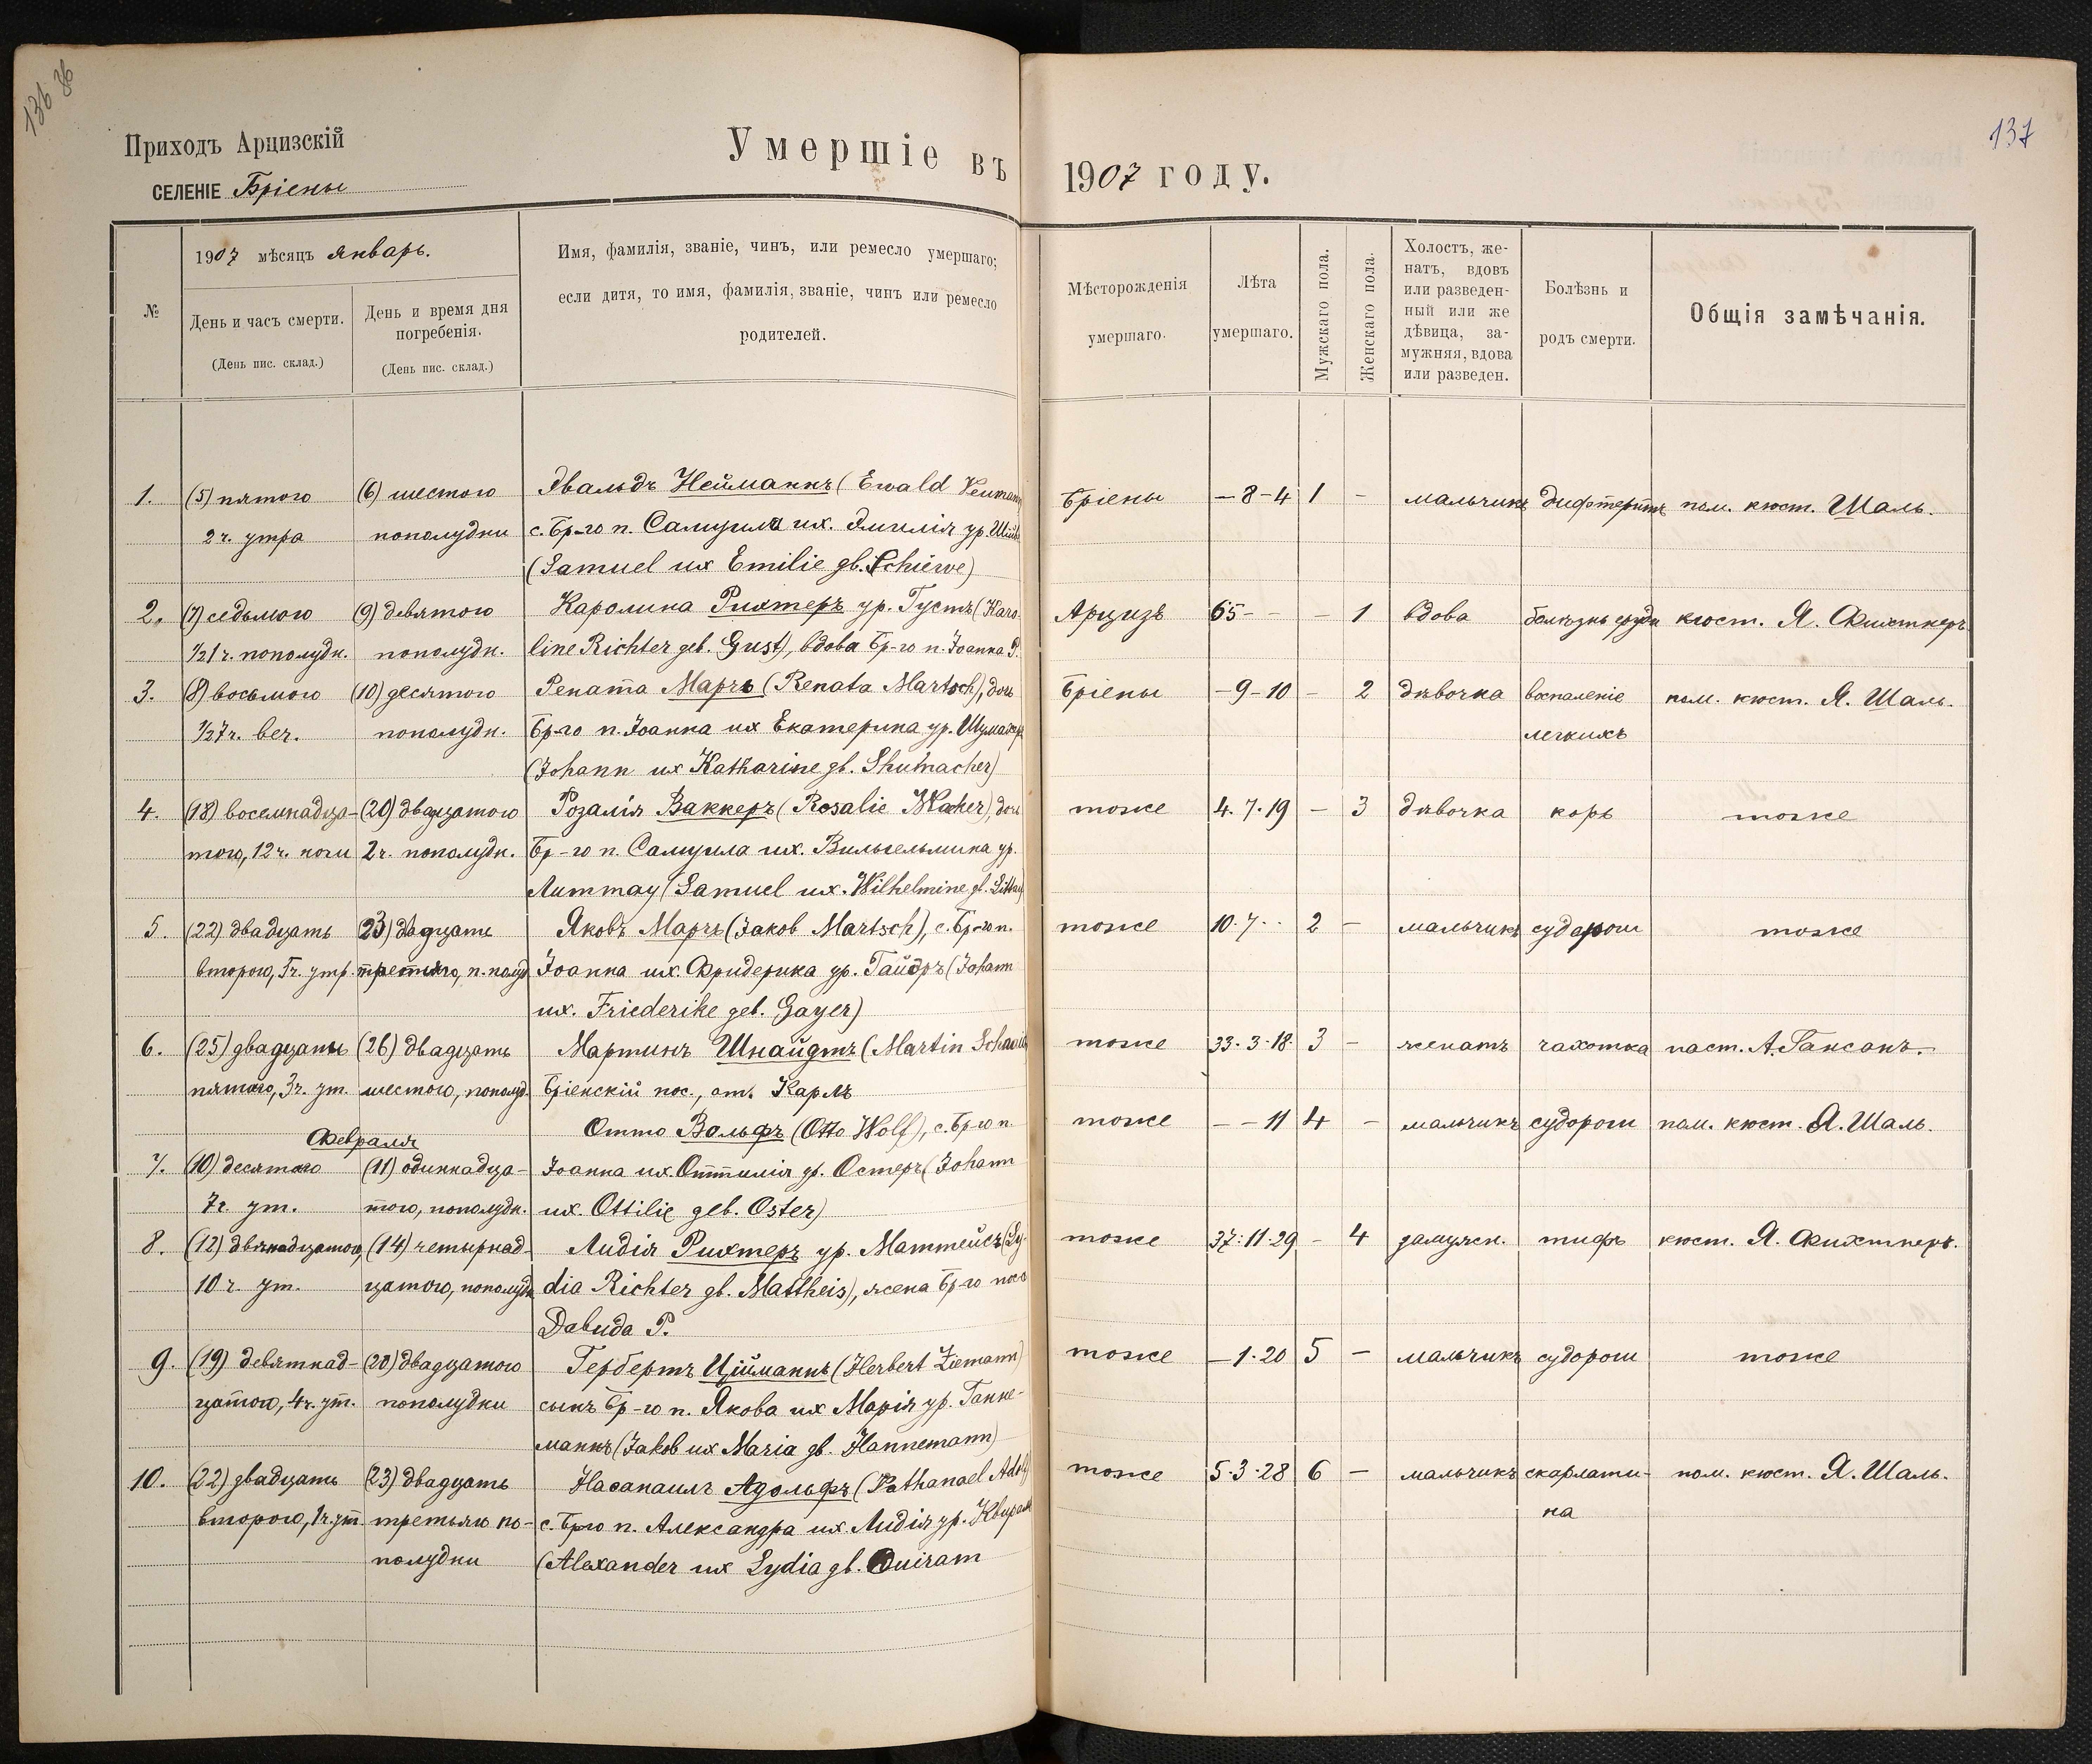 136 36
137
Приходъ Арцизскій
СЕЛЕНІЕ Бріены
Умершіе въ 1907 году.
№
1907 мѣсяцъ январь.
День и часъ смерти.
(День пис. склад.)
День и время дня
погребенія.
(День пис. склад.)
Имя, фамилія, званіе, чинъ, или ремесло умершаго;
если дитя, то имя, фамилія, званіе, чинъ или ремесло
родителей.
Мѣсторожденія
умершаго.
Лѣта
умершаго.
Мужскаго пола.
Женскаго пола.
Холостъ, же-
натъ, вдовъ
или разведен-
ный или же
дѣвица, за-
мужняя, вдова
или разведен.
Болѣзнь и
родъ смерти.
Общія замѣчанія.
1. (5) пятого (6) шестого Эвальдъ Нейманнъ (Ewald Neumann Бріены —8—4 1 — мальчикъ дифтеритъ пом. кюст. Шаль.
2 ч. утра пополудни с. Бр-го п. Самуила их. Эмилія ур.
(Samuel их Emilie gb. Schiewe)
2. (7) седьмого (9) девятого Каролина Рихтеръ ур. Густъ (Karo- Арцизъ 65 - - — 1 вдова болѣзнь груди кюст. Я. Фихтнеръ.
1/2 1 ч. пополудн. пополудн. line Richter geb. Gust), вдова Бр-го п. Іоанна Р.
3. (8) восьмого (10) десятого Рената Марчъ (Renata Martsch), дочь Бріены —9—10 — 2 дѣвочка воспаленіе пом. кюст. Я. Шаль.
1/2 7 ч. веч. пополудн. Бр-го п. Іоанна их Екатерина ур. Шумахеръ легкихъ
(Johann их Katharine gb. Shumacher)
4. (18) восемнадца- (20) двадцатого Розалія Ваккеръ (Rosalie Wacker), дочь тоже 4. 7. 19 — 3 дѣвочка корь тоже
того, 12 ч. ночи 2 ч. пополудн. Бр-го п. Самуила их. Вильгельмина ур.
Литтау (Samuel их. Wilhelmine gb. Littau)
5. (22) двадцать (23) двадцать Яковъ Марчъ (Jakob Martsch), с. Бр-го п. тоже 10. 7 .. 2 — мальчикъ судороги тоже
второго, 5 ч. утр. третьяго, п. полуд. Іоанна их. Фридерика ур. Гайэръ (Johann
их. Friederike geb. Gayer)
6. (25) двадцать (26) двадцать Мартинъ Шнайдтъ (Martin тоже 33. 3. 18. 3 — женатъ чахотка паст. А. Гансонъ.
пятого, 3 ч. ут. шестого, пополуд. Бріенскій пос., от. Карлъ
Февраля
Отто Вольфъ (Otto Wolf), с. Бр-го п. тоже — — 11 4 — мальчикъ судороги пом. кюст. Я. Шаль.
7. (10) десятого (11) одиннадца- Іоанна их. Оттилія ур. Остеръ (Johann
7 ч. ут. того, пополудн. их. Ottilie geb. Oster)
8. (12) двѣнадцатого, (14) четырнад- Лидія Рихтеръ ур. Маттейсъ (Ly- тоже 37. 11. 29 — 4 замужн. тифъ кюст. Я. Фихтнеръ.
10 ч. ут. цатого, пополудн. dia Richter gb. Mattheis), жена Бр-го пос.
Давида Р.
9. (19) девятнад- (20) двадцатого Гербертъ Ційманнъ (Herbert Ziemann) тоже —1. 20 5 — мальчикъ судороги тоже
цатого, 4 ч. ут. пополудни сынъ Бр-го п. Якова их Марія ур. Ганне-
маннъ (Jakob их Maria gb. Hannemann)
10. (22) двадцать (23) двадцать Наѳанаилъ Адольфъ (Nathanael Adolf тоже 5. 3. 28 6 — мальчикъ скарлати- пом. кюст. Я. Шаль.
второго, 1 ч. ут. третьяго по- с. Бр-го п. Александра их Лидія ур. Квирам на
полудни (Alexander их Lydia gb. Quiram